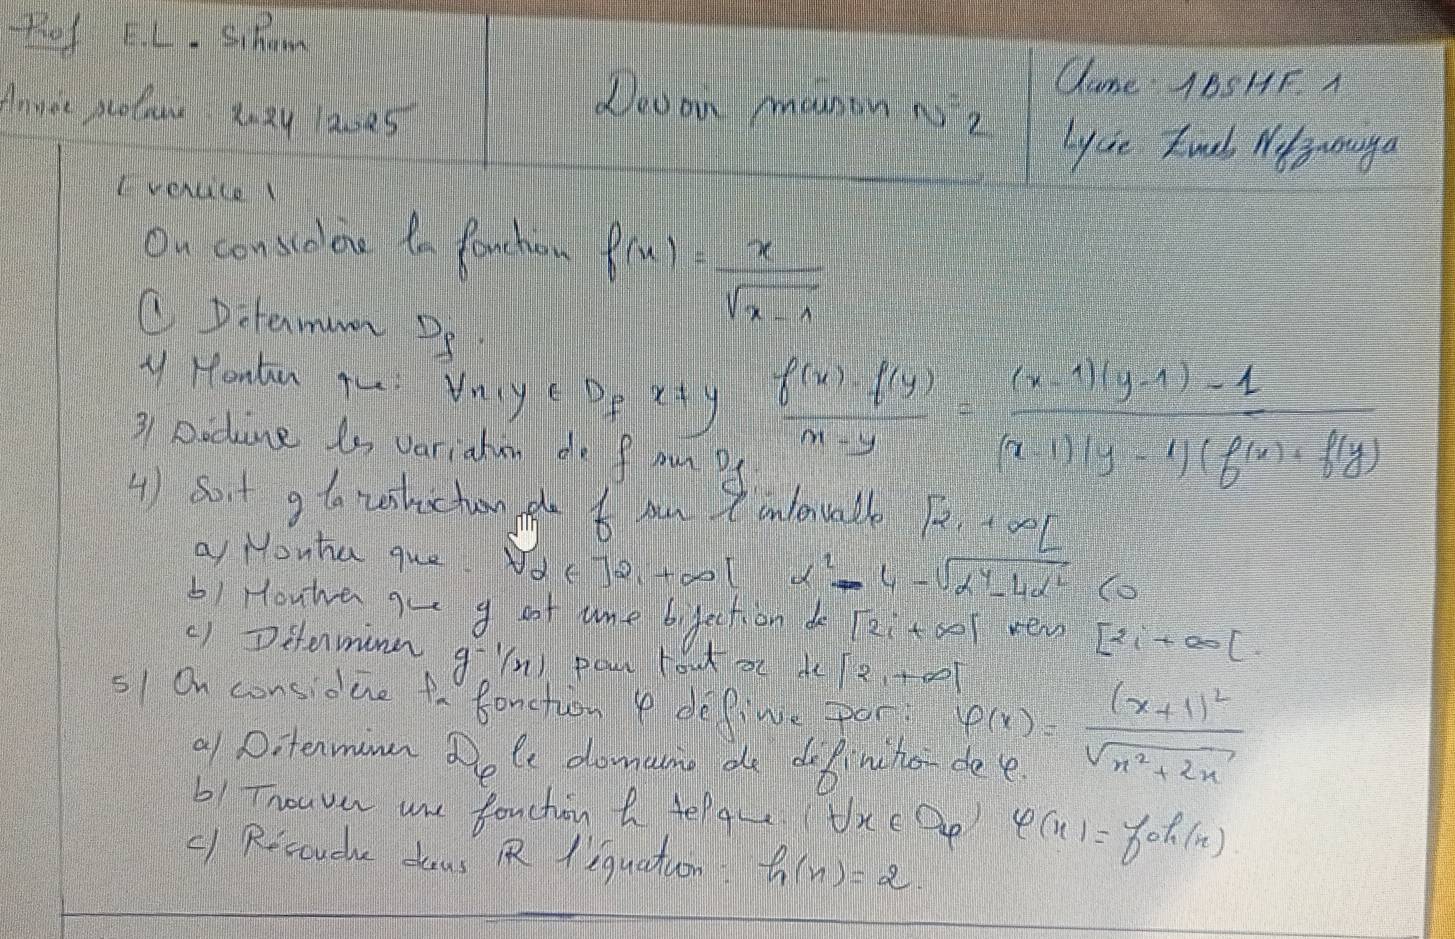 Prof E.L. Siham
Année scolaire 2024/2025
Devoir maison N°2
Classe: 1BSMF.1
Lycée Zineb Nefzaouiya
Exercice 1
On considère la fonction f(x) = x / √(x-1)
① Determiner Df.
2) Montrer que: ∀x,y ∈ Df x≠y (f(x)-f(y))/(x-y) = ((x-1)(y-1)-1)/((x-1)(y-1)(f(x)+f(y))
3) Déduire les variation de f sur Df.
4) Soit g la restriction de f sur l'intervalle [2,+∞[
a) Montrer que. ∀α ∈ ]2,+∞[ α²-4-√(α⁴-4α²) <0
b) Montrer que g est une bijection de [2;+∞[ vers [2;+∞[.
c) Déterminer g⁻¹(x) pour tout x de [2,+∞[
5) On considère la fonction φ définie par: φ(x) = (x+1)²/√(x²+2x)
a) Déterminer Dφ le domaine de définition de φ.
b) Trouver une fonction h telque (∀x ∈ Dφ) φ(x) = foh(x).
c) Résoudre dans ℝ l'équation: h(x)=2.